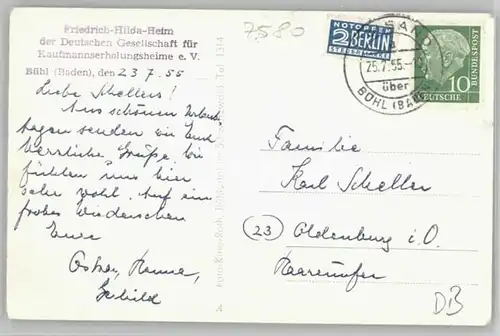 7580
Friedrich-Hilda-Heim
der Deutschen Gesellschaft für
Kaufmannserholungsheime e. V.
Bühl (Baden), den 23 7. 55
Liebe Schellers!
Aus schönen Urlaubs-
tagen senden wir Euch
herzliche Grüße. Wir
fühlen uns hier
sehr wohl. Auf ein
frohes Wiedersehen
Eure
Oskar, Hanna,
NOTOPFER
2 BERLIN
STEUERMARKE
SAND
25.7.55
über
BÜHL (BADEN)
10
DEUTSCHE
BUNDESPOST
Familie
Karl Scheller
(23) Oldenburg i. O.
Haarenufer
DB